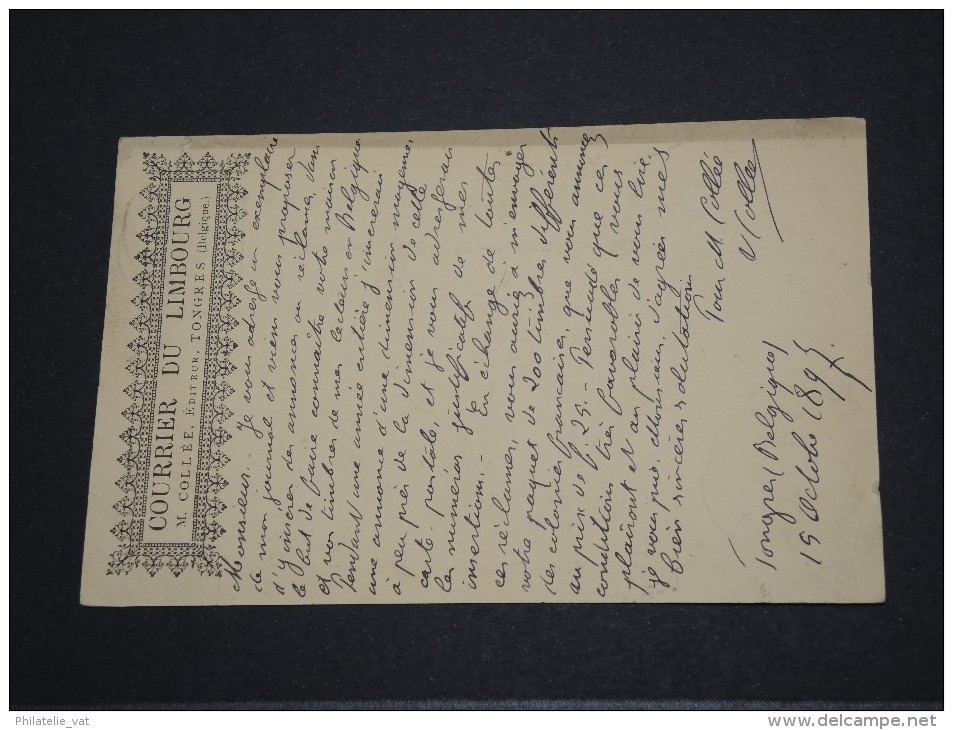 COURRIER DU LIMBOURG
M. COLLÉE, ÉDITEUR, TONGRES (Belgique.)
Monsieur. - Je vous adresse un exemplaire
de mon journal et viens vous proposer
d'y insérer des annonces ou réclames, dans
le but de faire connaître votre maison
et vos timbres de mes lecteurs en Belgique
Pendant une année entière j'insererais
une annonce d'une dimension moyenne,
à peu près de la dimension de cette
carte-postale, et je vous adresserais
les numéros justificatifs de mes
insertions. - En échange de toutes
ces réclames, vous auriez à m'envoyer
votre paquet de 200 timbres différents
des colonies françaises, que vous annoncez
au prix de f. 25. - Persuadé que ces
conditions très favorables vous
plairont et au plaisir de vous lire,
je vous prie, Monsieur, d'agréer mes
bien sincères salutations.
Pour M Collée
Collée
Tongres (Belgique)
15 Octobre 1895.
Philatelie_vat
www.delcampe.net